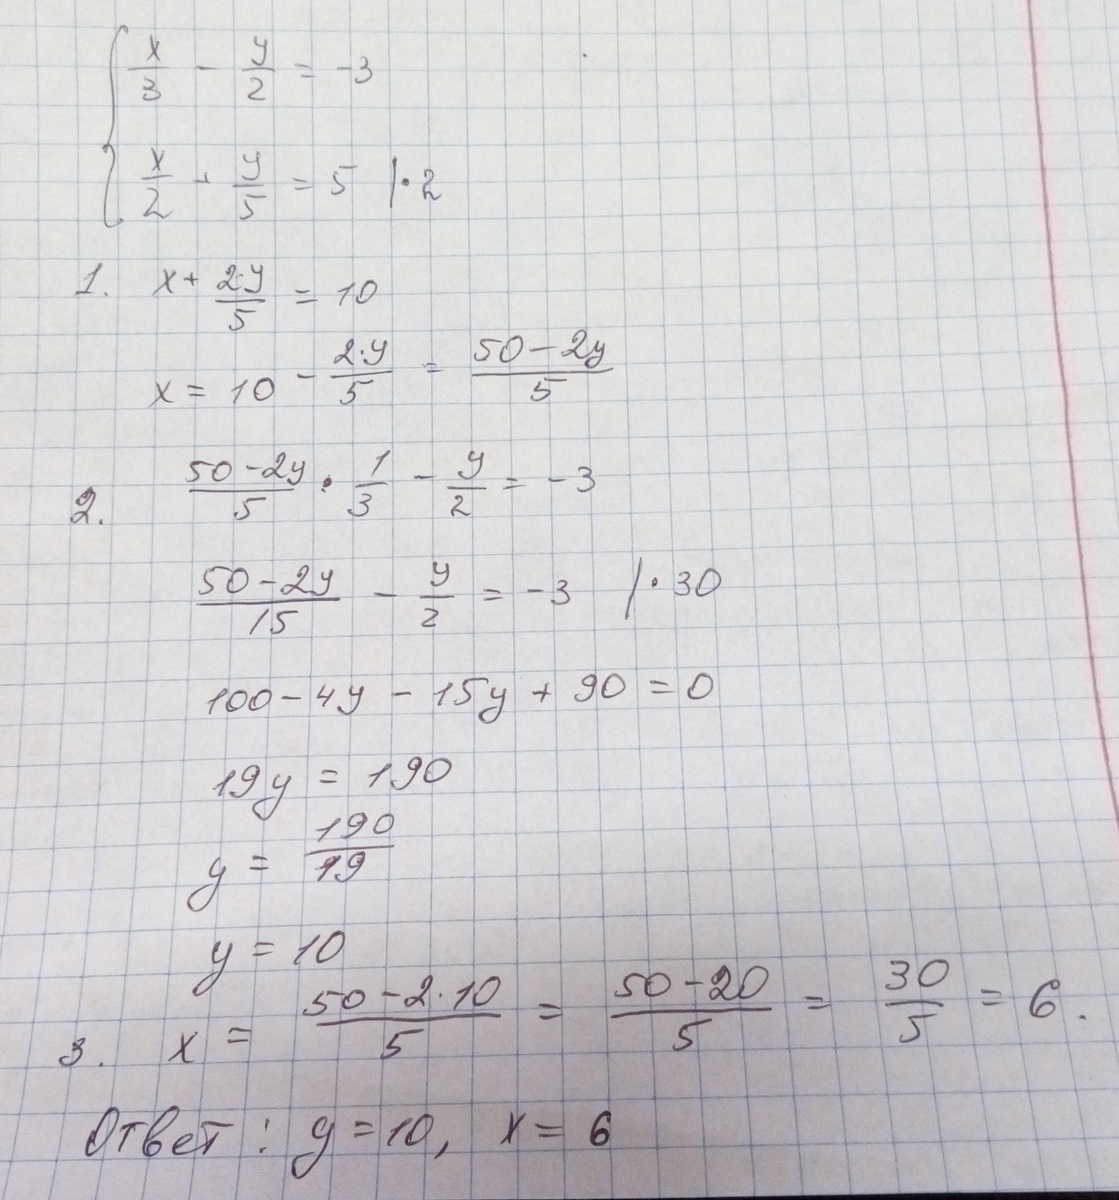 x/3 - y/2 = -3
x/2 + y/5 = 5 |·2
1. x + 2·y/5 = 10
x = 10 - 2·y/5 = (50-2y)/5
2. (50-2y)/5 · 1/3 - y/2 = -3
(50-2y)/15 - y/2 = -3 |·30
100-4y - 15y + 90 = 0
19y = 190
y = 190/19
y = 10
3. x = (50-2·10)/5 = (50-20)/5 = 30/5 = 6.
Ответ: y=10, x=6